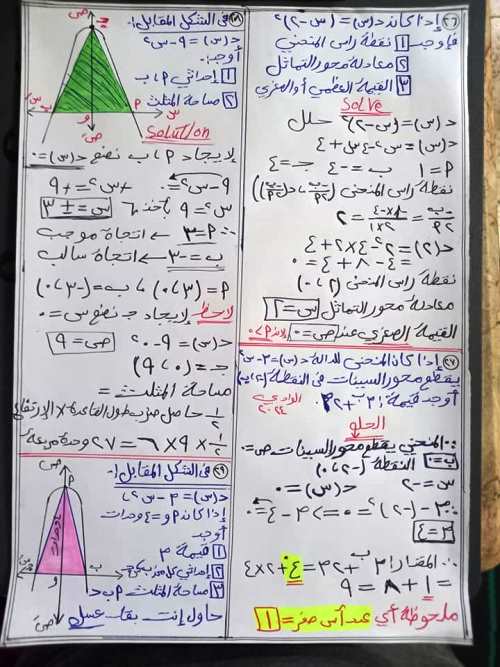 ٢٦ إذا كانت د(س) = (س-٢)²
فأوجد ١ نقطة رأس المنحنى
٢ معادلة محور التماثل
٣ القيمة العظمى أو الصغرى
Solve
د(س) = (س-٢)² حلل
د(س) = س²-٤س+٤
٩=١ ب=-٤ جـ=٤
نقطة رأس المنحنى (-ب/٢٩، د(-ب/٢٩))
-ب/٢٩ = -٤×-١/٢×١ = ٢
د(٢) = ٢²-٤×٢+٤
= ٤-٨+٤ = ٠
نقطة رأس المنحنى (٢،٠)
معادلة محور التماثل س=٢
القيمة الصغرى عند ص=٠ لأن ٩>٠
٢٧ إذا كان المنحنى للدالة د(س) = ٣-س²
يقطع محور السينات في النقطة (-٢،ب)
أوجد قيمة ٣١ب+٢٣
الوادي ٢٠٢٤
الحلو
∵ المنحنى يقطع محور السينات ص=٠
ب=٠ النقطة (-٢،٠)
س=-٢ د(س)=٠
∴ ٣-(-٢)²=٠ => ٣-٤=٠
٣=٤
∴ المقدار ٣١ب+٢٣ = ٤٠+٢×٤
= ١+٨ = ٩
ملحوظة أي عدد أس صفر = ١
٢٨ في الشكل المقابل :-
د(س) = ٩-س²
أوجد :-
١ إحداثي ٩، ب
٢ مساحة المثلث
جـ
ص
س
ب
و
٩
س
ص
Solution
لإيجاد ٩، ب نضع د(س)=٠
٩-س²=٠ +س²=+٩
س²=٩ بأخذ √ س=±٣
∴ ٩=٣ ← اتجاة موجب
ب=-٣ ← اتجاة سالب
٩=(٣،٠) ، ب=(-٣،٠)
لاحظ لإيجاد جـ نضع س=٠
د(س)=٩-٠² ص=٩
جـ=(٠،٩)
مساحة المثلث =
١/٢ حاصل ضرب طول القاعدة × الإرتفاع
١/٢×٩×٦=٢٧ وحدة مربعة
٢٩ في الشكل المقابل :-
د(س) = ٣-س²
إذا كانت ٩و=٤ وحدات
أوجد
١ قيمة ٣
٢ إحداثي كلا من ب، جـ
٣ مساحة المثلث ٩ب جـ
حاول إنت بقا عسل
ص
٩
٤ وحدات
س
و
ب
ص